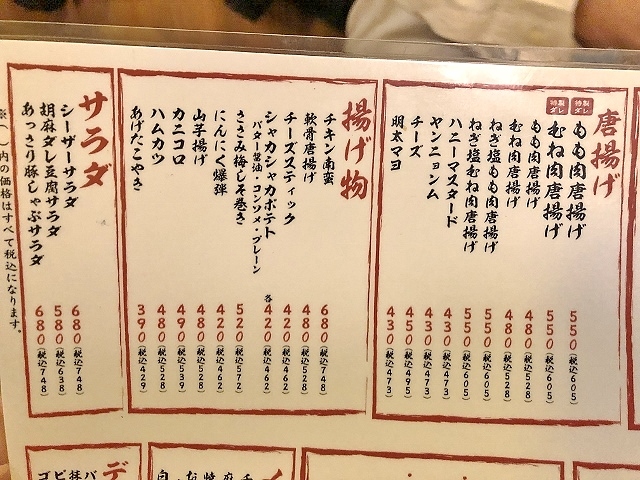 唐揚げ
特製ダレ もも肉唐揚げ 550(税込605)
特製ダレ むね肉唐揚げ 550(税込605)
もも肉唐揚げ 480(税込528)
むね肉唐揚げ 480(税込528)
ねぎ塩もも肉唐揚げ 550(税込605)
ねぎ塩むね肉唐揚げ 550(税込605)
ハニーマスタード 430(税込473)
ヤンニョンム 430(税込473)
チーズ 450(税込495)
明太マヨ 430(税込473)
揚げ物
チキン南蛮 680(税込748)
軟骨唐揚げ 480(税込528)
チーズスティック 420(税込462)
シャカシャカポテト 各420(税込462)
バター醤油・コンソメ・プレーン
ささみ梅しそ巻き 520(税込572)
にんにく爆弾 420(税込462)
山芋揚げ 480(税込528)
カニコロ 490(税込539)
ハムカツ 480(税込528)
あげたこやき 390(税込429)
サラダ
シーザーサラダ 680(税込748)
胡麻ダレ豆腐サラダ 580(税込638)
あっさり豚しゃぶサラダ 680(税込748)
※( )内の価格はすべて税込になります。